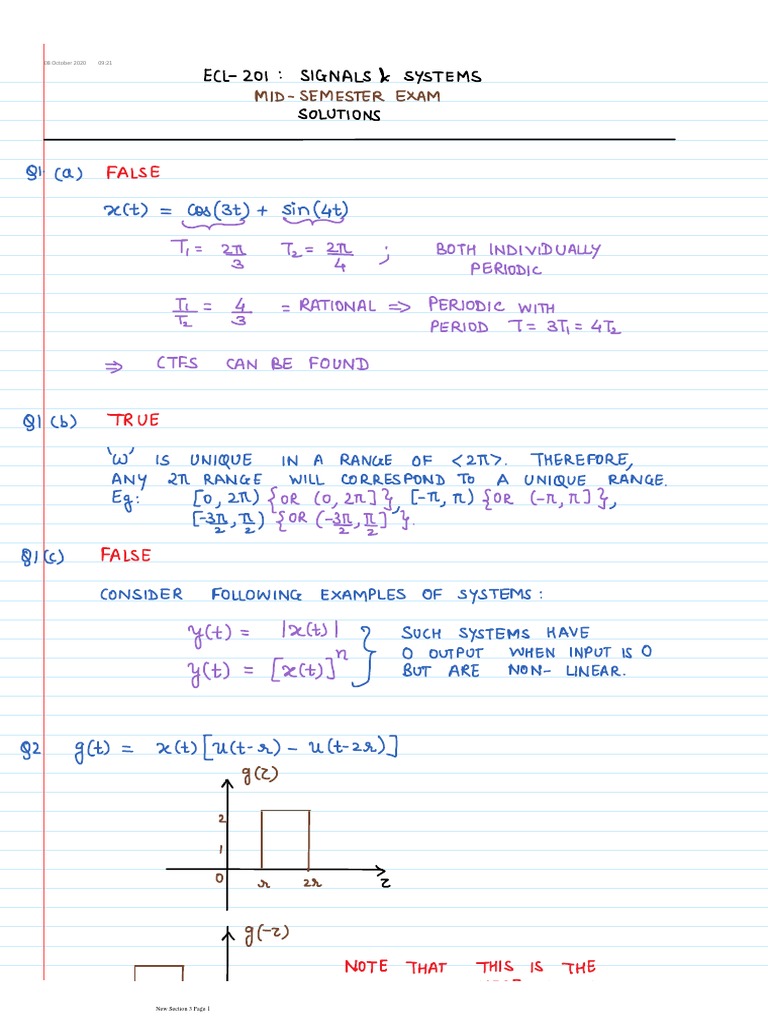 08 October 2020 09:21
ECL-201: SIGNALS & SYSTEMS
MID-SEMESTER EXAM
SOLUTIONS
Q1 (a) FALSE
x(t) = cos(3t) + sin(4t)
T1 = 2π/3 T2 = 2π/4 ; BOTH INDIVIDUALLY
PERIODIC
T1/T2 = 4/3 = RATIONAL => PERIODIC WITH
PERIOD T = 3T1 = 4T2
=> CTFS CAN BE FOUND
Q1 (b) TRUE
'ω' IS UNIQUE IN A RANGE OF <2π>. THEREFORE,
ANY 2π RANGE WILL CORRESPOND TO A UNIQUE RANGE.
Eg: [0, 2π) {OR (0, 2π]}, [-π, π) {OR (-π, π]},
[-3π/2, π/2) {OR (-3π/2, π/2]}.
Q1 (c) FALSE
CONSIDER FOLLOWING EXAMPLES OF SYSTEMS:
y(t) = |x(t)| } SUCH SYSTEMS HAVE
0 OUTPUT WHEN INPUT IS 0
y(t) = [x(t)]^n BUT ARE NON-LINEAR.
Q2 g(t) = x(t)[u(t-r) - u(t-2r)]
g(τ)
2
1
0 r 2r τ
g(-τ)
NOTE THAT THIS IS THE
New Section 3 Page 1